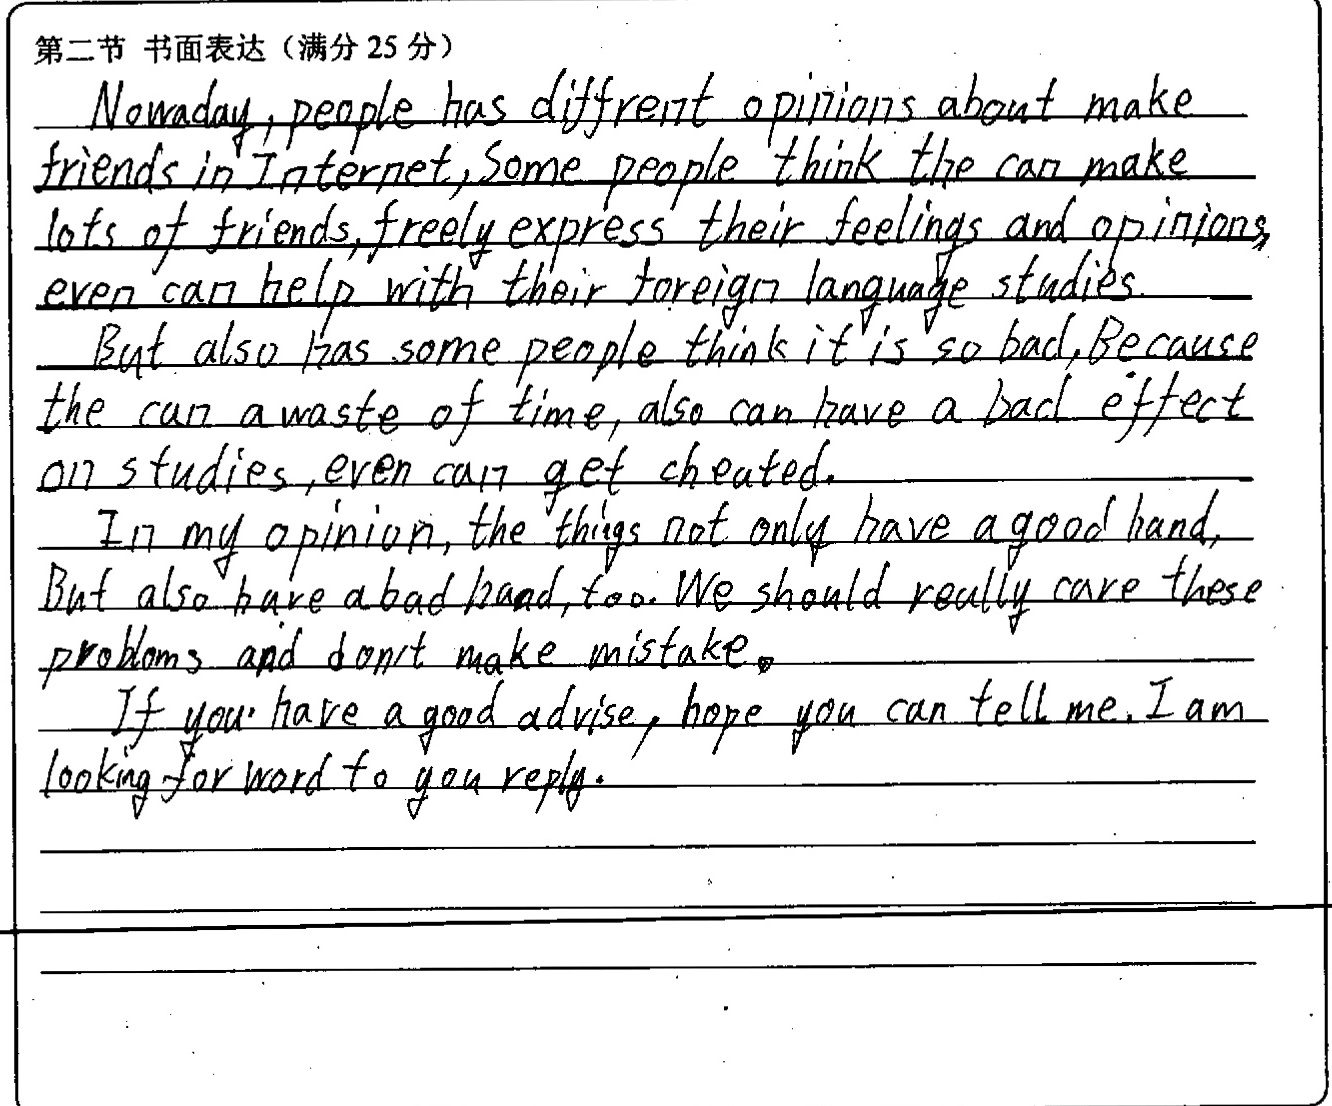 第二节 书面表达（满分 25 分）
Nowaday, people has diffrent opinions about make
friends in Internet, Some people think the can make
lots of friends, freely express their feelings and opinions,
even can help with their foreign language studies.
But also has some people think it is so bad, Because
the can a waste of time, also can have a bad effect
on studies, even can get cheated.
In my opinion, the things not only have a good hand,
But also have a bad hand, too. We should really care these
probloms and don't make mistake.
If you have a good advise, hope you can tell me. I am
looking for word to you reply.